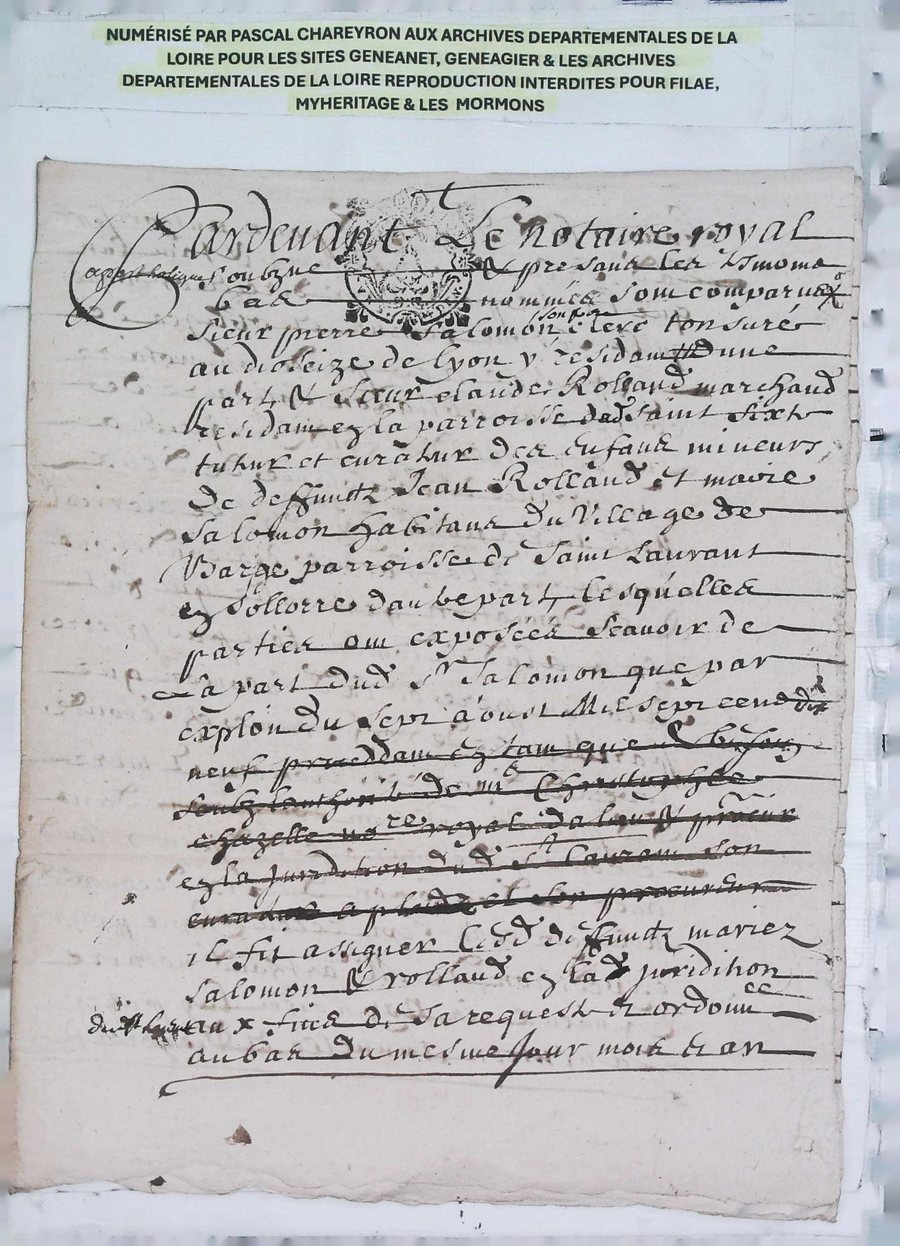 NUMÉRISÉ PAR PASCAL CHAREYRON AUX ARCHIVES DEPARTEMENTALES DE LA
LOIRE POUR LES SITES GENEANET, GENEAGIER & LES ARCHIVES
DEPARTEMENTALES DE LA LOIRE REPRODUCTION INTERDITES POUR FILAE,
MYHERITAGE & LES MORMONS
Pardevant Le notaire royal
soubzne & presans les tsmoins
bas nommés sont comparus
sieur pierre Salomon clerc tonsuré
au dioseize de lyon y residant dune
part, & sieur claude Rolland marchand
residant en la parroisse dud saint sixte
tuteur et curateur des enfans mineurs,
de deffunctz Jean Rolland et marie
Salomon habitans du village de
Barge parroisse de saint Laurant
en sollorre dautre part, lesquelles
parties ont exposées scavoir de
la part dud sr Salomon que par
exploit du sept aoust Mil sept cend dix
neuf procddant en tant que de besoing
soubz lauthorité de me Christophle
chazelle nore royal dalieu & procureur
en la juridition dud st laurant son
curateur a plaidz et son procureur
il fit assigner lesd deffunctz mariez
Salomon & rolland en lad juridition
aux fins de sa requeste et ordonnce
au bas du mesme jour mois et an